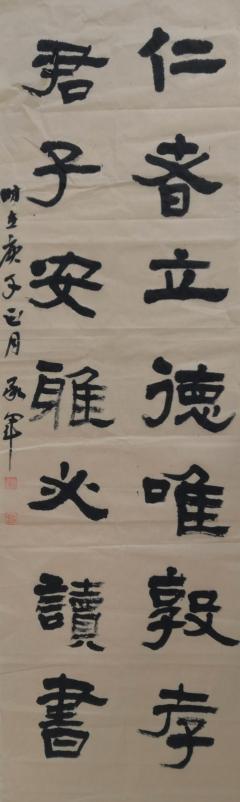 仁者立德唯敦孝
君子安雅必讀書
時在庚子正月